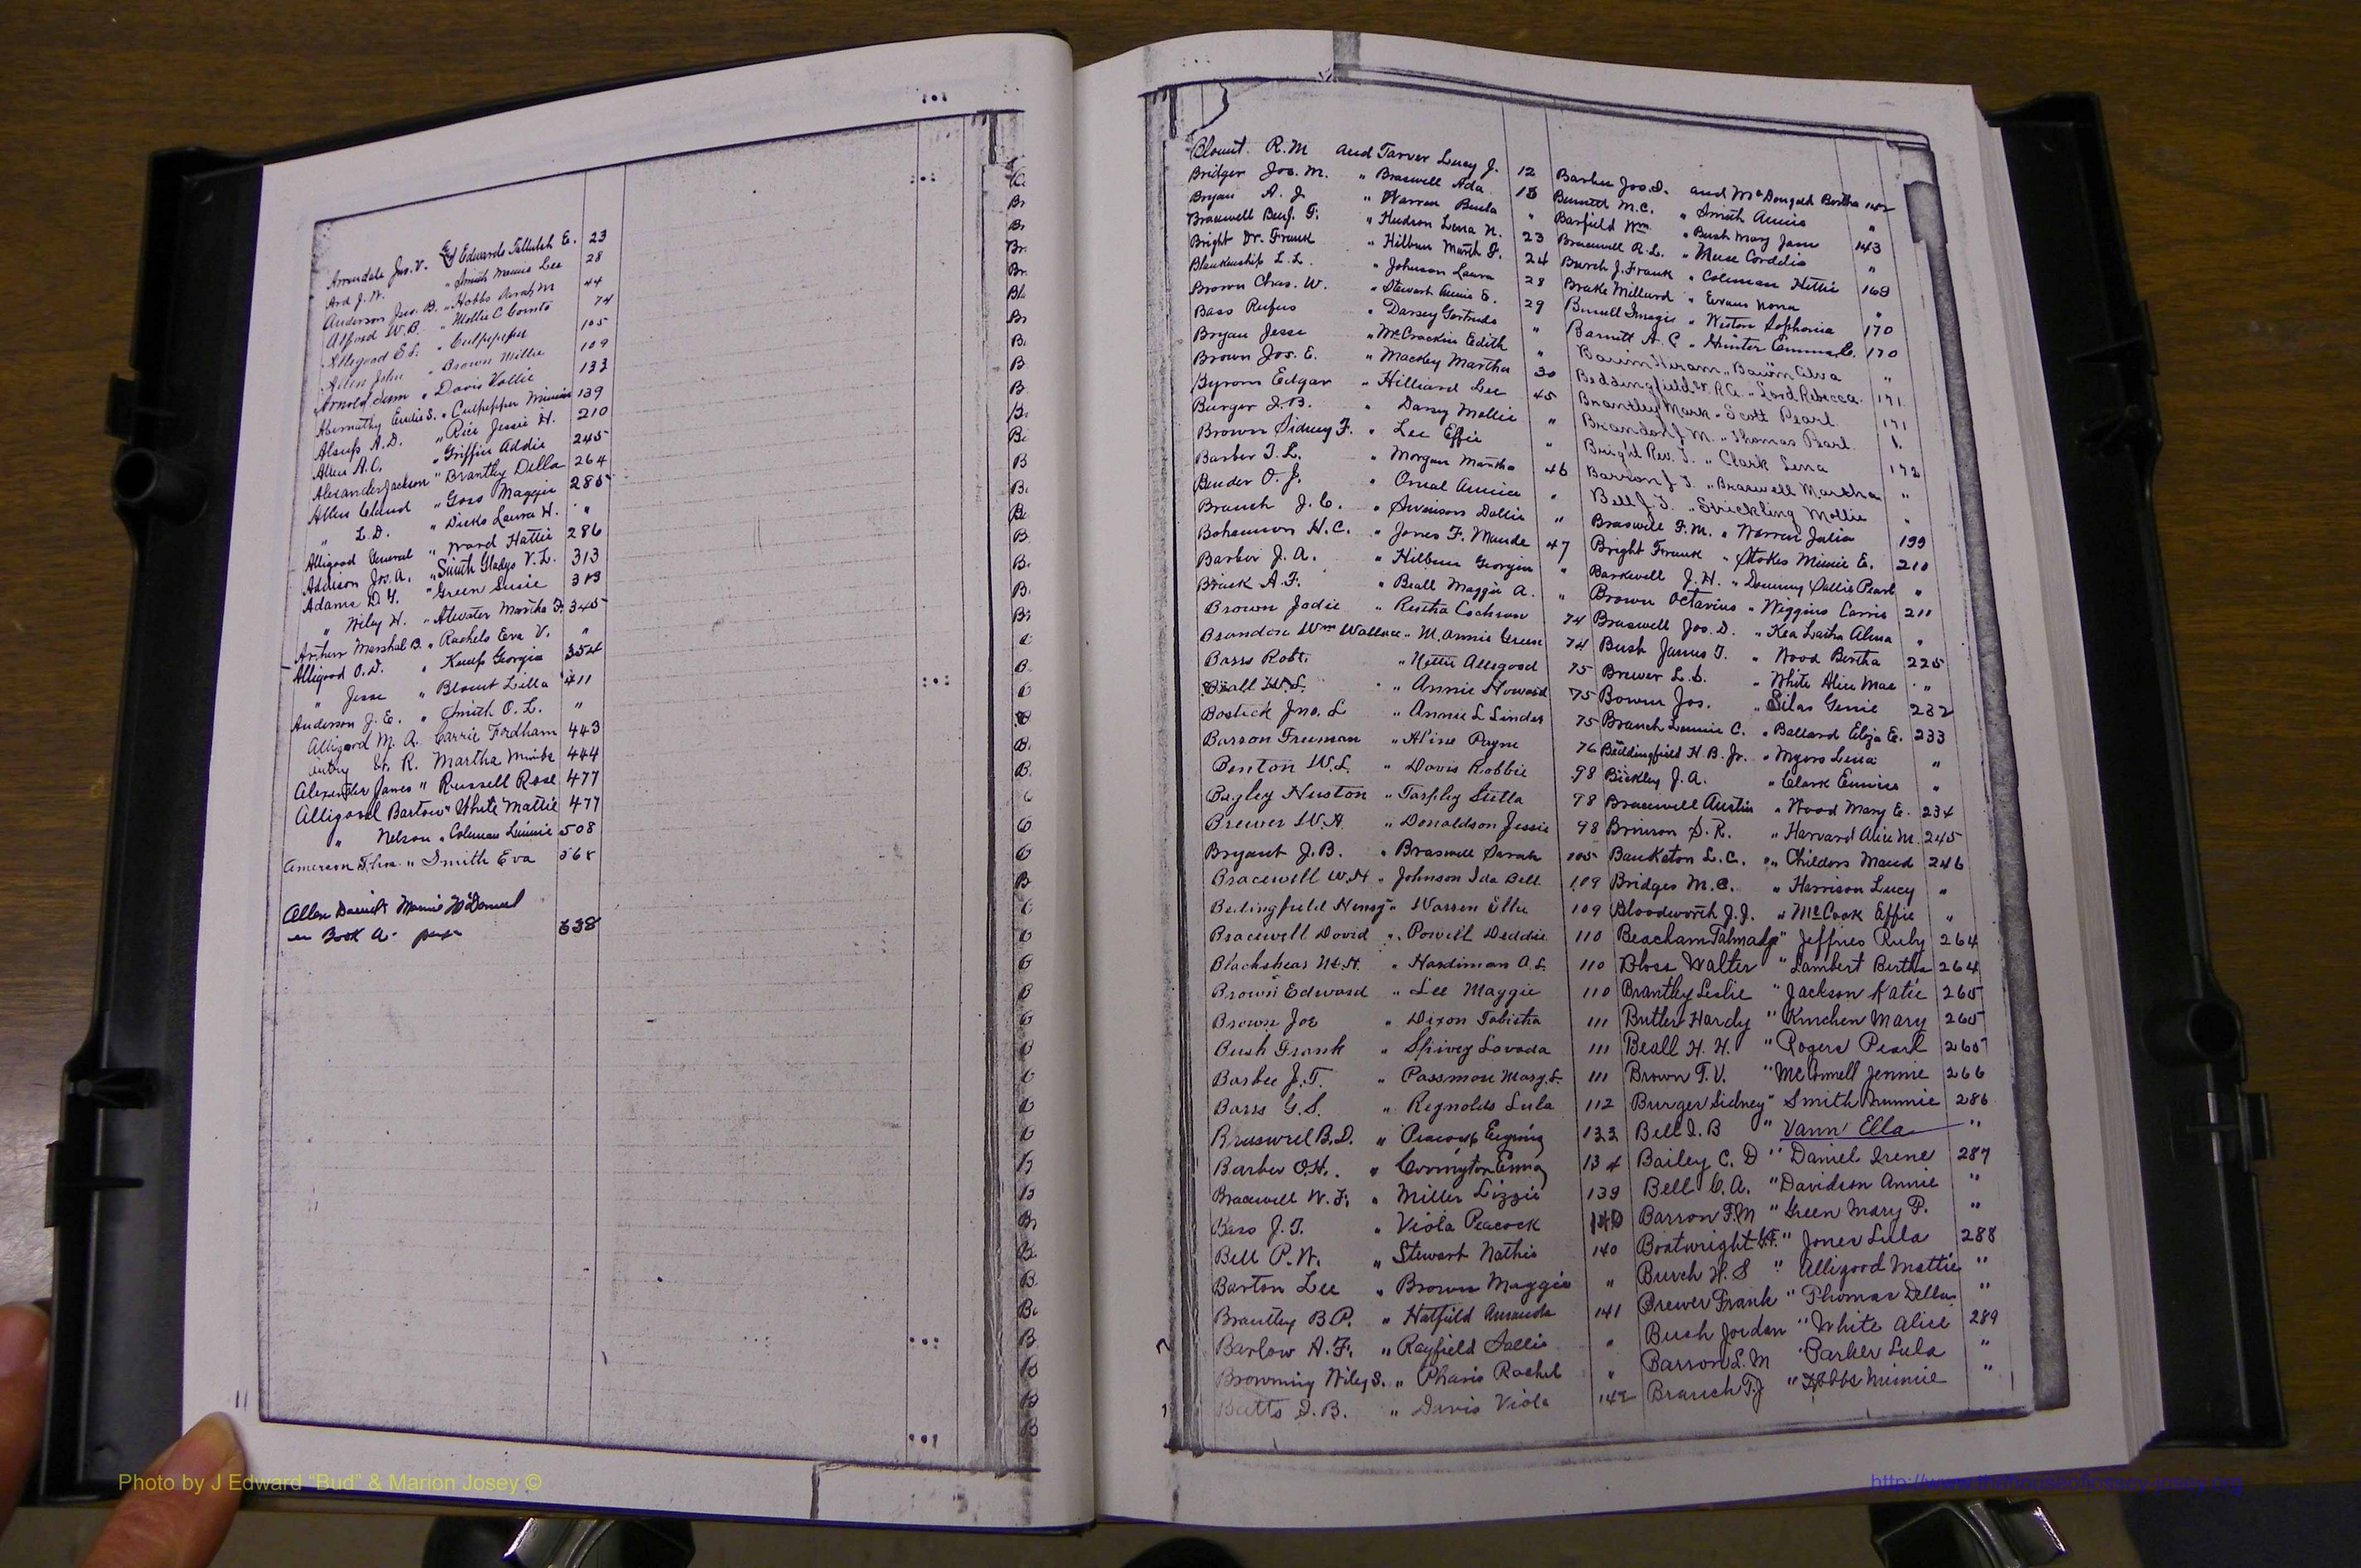 Arrendale Jas. V. & Edwards Tallulah E. 23
Ard J. W. " Smith Mamie Lee 28
Anderson Jno. B. " Hobbs Sarah M 44
Alford W. B. " Mollie C Counts 74
Alligood E. L. " Culpepper 105
Allen John " Brown Millie 109
Arnold " Davis Vallie 133
Abernathy Eudie S. " Culpepper Minnie 139
Alsup A. D. " Rice Jessie H. 210
Allen A. C. " Griffin Addie 245
Alexander Jackson " Brantley Della 264
Allen Claud " Goss Maggie 285
" L. D. " Dicks Laura H. "
Alligood General " Ward Hattie 286
Addison Jos. A. " Smith Gladys V. L. 313
Adams D. Y. " Green Susie 313
" Wiley H. " Atwater Martha F. 345
Arthur Marshal B. " Rachels Eva V. "
Alligood O. D. " Kemp Georgia 354
" Jesse " Blount Lilla 411
Anderson J. E. " Smith O. L. "
Alligood M. A. Carrie Fordham 443
Autry R. Martha Mimbs 444
Alexander James " Russell Rose 477
Alligood Bartow " White Mattie 477
" Nelson " Coleman Limmie 508
Amerson Thos. " Smith Eva 568
Allen Daniel & Mamie McDaniel
in Book A. page 638
11
Blount R. M and Tarver Lucy J. 12
Bridger Jos. M. " Braswell Ada 13
Bryan A. J. " Warren Beula "
Bracewell Benj. F. " Hudson Lena N. 23
Bright Dr. Frank " Hilbun Marth F. 24
Blankenship L. L. " Johnson Laura 28
Brown Chas. W. " Stewart Annie E. 29
Bass Rufus " Darsey Gertrude "
Bryan Jesse " McCrackin Edith "
Brown Jos. E. " Mackey Martha 30
Byrom Edgar " Hilliard Lee 45
Burger J. B. " Darsey Mollie "
Brown Sidney F. " Lee Effie "
Barber T. L. " Morgan Martha 46
Bender O. J. " Oneal Annice "
Branch J. C. " Swinson Dollie "
Bohannon H. C. " Jones F. Maude 47
Barber J. A. " Hilbun Georgia "
Brack A. F. " Beall Maggie A. "
Brown Jodie " Rentha Cochran 74
Brandon Wm Wallace " M. Annie Greene 74
Bass Robt. " Nettie Allegood 75
Beall W. S. " Annie Howard 75
Bostick Jno. L " Annie L Linder 75
Barron Freeman " Aline Payne 76
Benton W. L. " Davis Robbie 98
Bagley Huston " Tarpley Stella 98
Brewer W. A. " Donaldson Jessie 98
Bryant J. B. " Braswell Sarah 105
Bracewell W. H " Johnson Ida Bell 109
Bedingfield Henry " Warren Ella 109
Bracewell David " Powell Deddie 110
Blackshear " Hardiman A. L. 110
Brown Edward " Lee Maggie 110
Brown Joe " Dixon Tabitha 111
Bush Frank " Spivey Lovada 111
Barbee J. T. " Passmore Mary L. 111
Bass G. S. " Reynolds Lula 112
Braswell B. D. " Peacock 133
Barber O. H. " Covington Emma 134
Bracewell W. F. " Miller Lizzie 139
Bass J. T. " Viola Peacock 140
Bell P. W. " Stewart Mathis 140
Barton Lee " Brown Maggie "
Brantley B P. " Hatfield Amanda 141
Barlow A. F. " Rayfield Sallie "
Browning Wiley S. " Pharis Rachel "
Butts J. B. " Davis Viola 142
Barbee Jos. D. and McDougald Bertha 142
Burnett M. C. " Smith Annie "
Barfield Wm. " Bush Mary Jane 143
Bracewell R. L. " Muse Cordelia "
Burch J. Frank " Coleman Hettie 169
Brake Millard " Evans Nona "
" Weston Sophonia 170
Barnett A. C " Hunter Emma C. 170
Baum Hiram " Baum Alva "
Beddingfield R. A. " Lord Rebecca 171
Brantley Mark " Scott Pearl 171
Brandon J M. " Thomas Pearl "
Bright Rev. J. " Clark Lena 172
Barron J J. " Braswell Martha "
Bell J. T. " Strickling Mollie "
Braswell F. M. " Warren Julia 199
Bright Frank " Stokes Minnie E. 210
Barkwell J. H. " Downing Sallie Pearl "
Brown Octavius " Wiggins Carrie 211
Braswell Jos. D. " Kea Laitha Alma "
Bush James T. " Wood Bertha 225
Brewer L. S. " White Alice Mae "
Bowen Jos. " Silas Genie 232
Branch Lonnie C. " Ballard Eliza E. 233
Beddingfield H. B. Jr. " Myers Lena "
Bickley J. A. " Clark Eunice "
Bracewell Austin " Wood Mary E. 234
Brinson S. R. " Harvard Alice M. 245
Bankston L. C. " Childers Maud 246
Bridges M. C. " Harrison Lucy "
Bloodworth J. J. " McCook Effie "
Beacham Talmadge " Jeffries Ruby 264
Bloss Walter " Lambert Bertha 264
Brantley Leslie " Jackson Katie 265
Butler Hardy " Kinchen Mary 265
Beall H. H. " Rogers Pearl 265
Brown T. V. " McConnell Jennie 266
Burger Sidney " Smith Minnie 286
Bell I. B " Vann Ella "
Bailey C. D " Daniel Irene 287
Bell C. A. " Davidson Annie "
Barron F. M " Green Mary P. "
Boatwright " Jones Lula 288
Burch H. S " Alligood Mattie "
Brewer Frank " Thomas Della "
Bush Jordan " White Alice 289
Barron L. M " Parker Lula "
Branch T. J " Hobbs Minnie "
Photo by J Edward “Bud” & Marion Josey ©
http://www.thehouseofjossey-josey.org